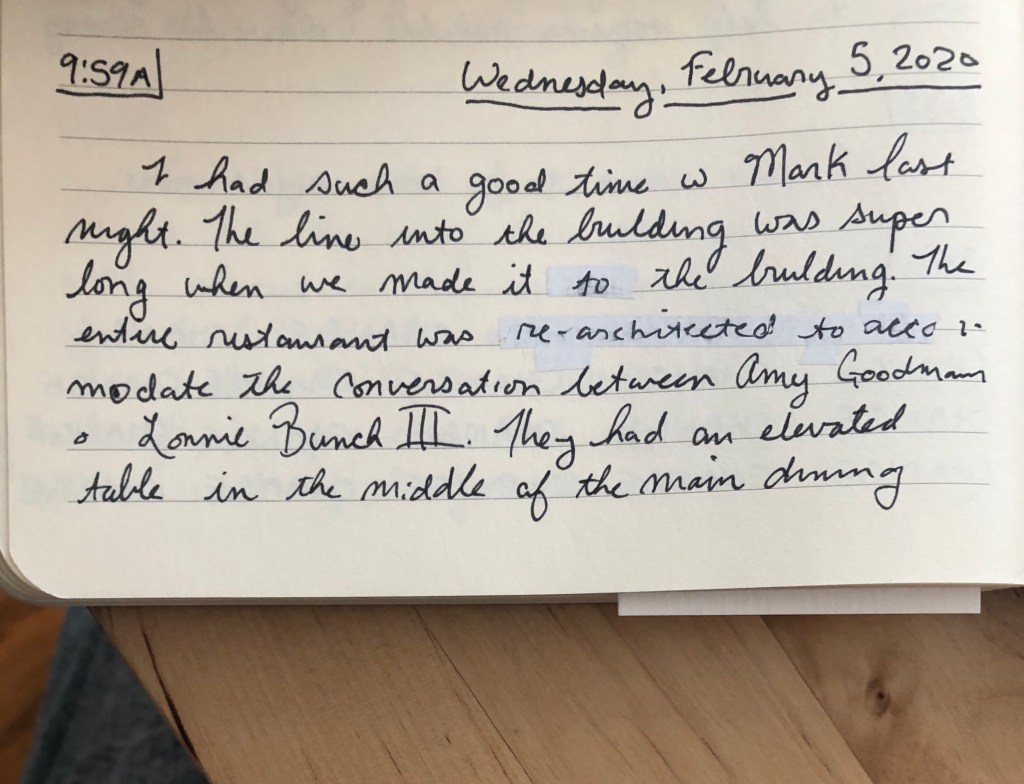 9:59A Wednesday, February 5, 2020
I had such a good time w Mark last
night. The line into the building was super
long when we made it to the building. The
entire restaurant was re-architected to acco
modate the conversation between Amy Goodman
Lonnie Bunch III. They had an elevated
table in the middle of the main dining